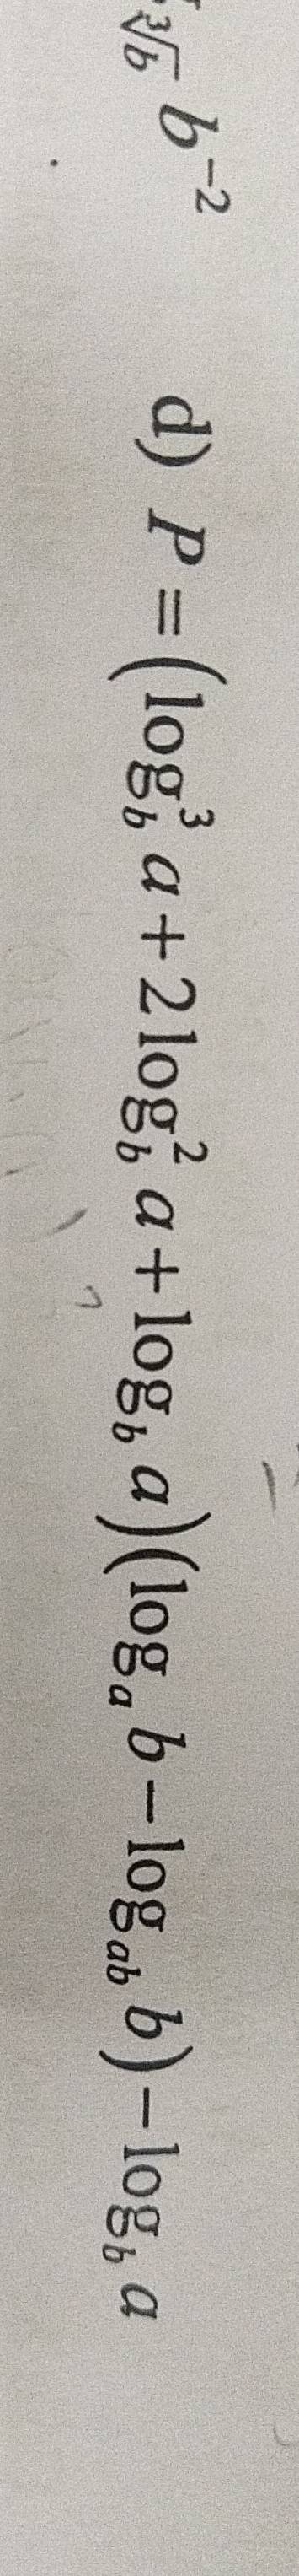 ∛b b⁻²
d) P = (log³_b a + 2 log²_b a + log_b a)(log_a b − log_ab b) − log_b a